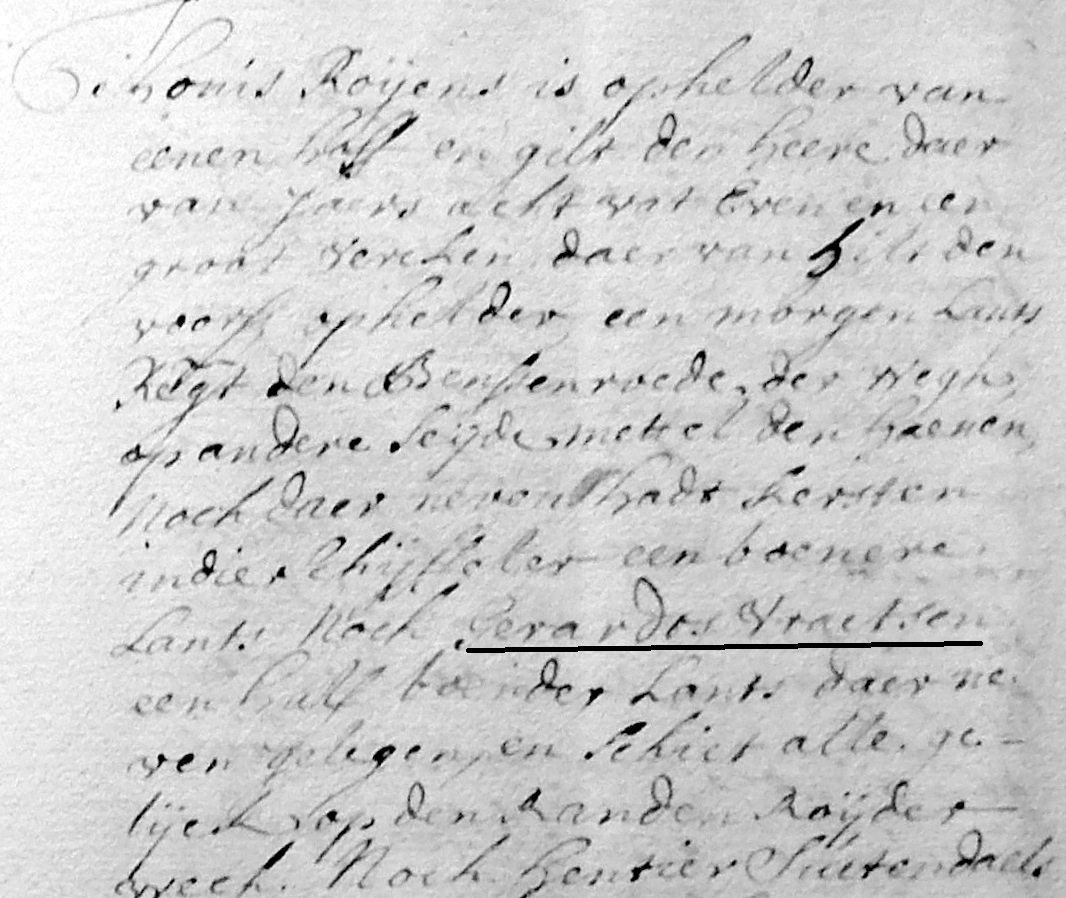 Thonis Roijens is ophelder van
eenen half en gilt den heere daer
van Jaers acht vat Even en een
groot vercken, daer van hilt den
voors ophelder een morgen Lants
den Benssenroede, der wegh
op andere seijde mettel den haenen,
Noch daer neven hadt kersten
indier een boenere
Lants Noch Gerardos Vraetsen
een half boender Lants daer ne
ven gelegen, en schiet alle ge-
lijck op den kanden Roijder
wech. Noch hentier Suetendaels